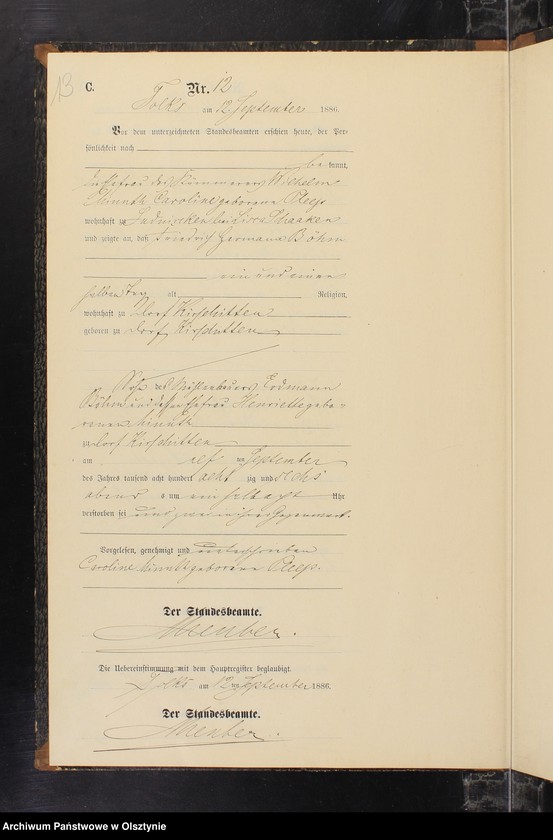 13
C. Nr. 12
Tolks am 12 September 1886.
Vor dem unterzeichneten Standesbeamten erschien heute, der Per-
sönlichkeit nach
be kannt,
Wilhelm
Caroline geborene
wohnhaft zu
und zeigte an, daß Friedrich Hermann Böhm
ein und einen
halben Tag alt Religion,
wohnhaft zu Dorf Kirschitten
geboren zu Dorf Kirschitten
Sohn des Erdmann
Böhm und dessen Ehefrau Henriette gebo-
rene
zu Dorf Kirschitten
am elf ten September
des Jahres tausend acht hundert acht zig und sechs
abends um ein halb acht Uhr
verstorben sei und zwar in ihrer Gegenwart.
Vorgelesen, genehmigt und unterschrieben
Caroline geborene
Der Standesbeamte.
Die Uebereinstimmung mit dem Hauptregister beglaubigt.
Tolks am 12 ten September 1886.
Der Standesbeamte.
Archiwum Państwowe w Olsztynie